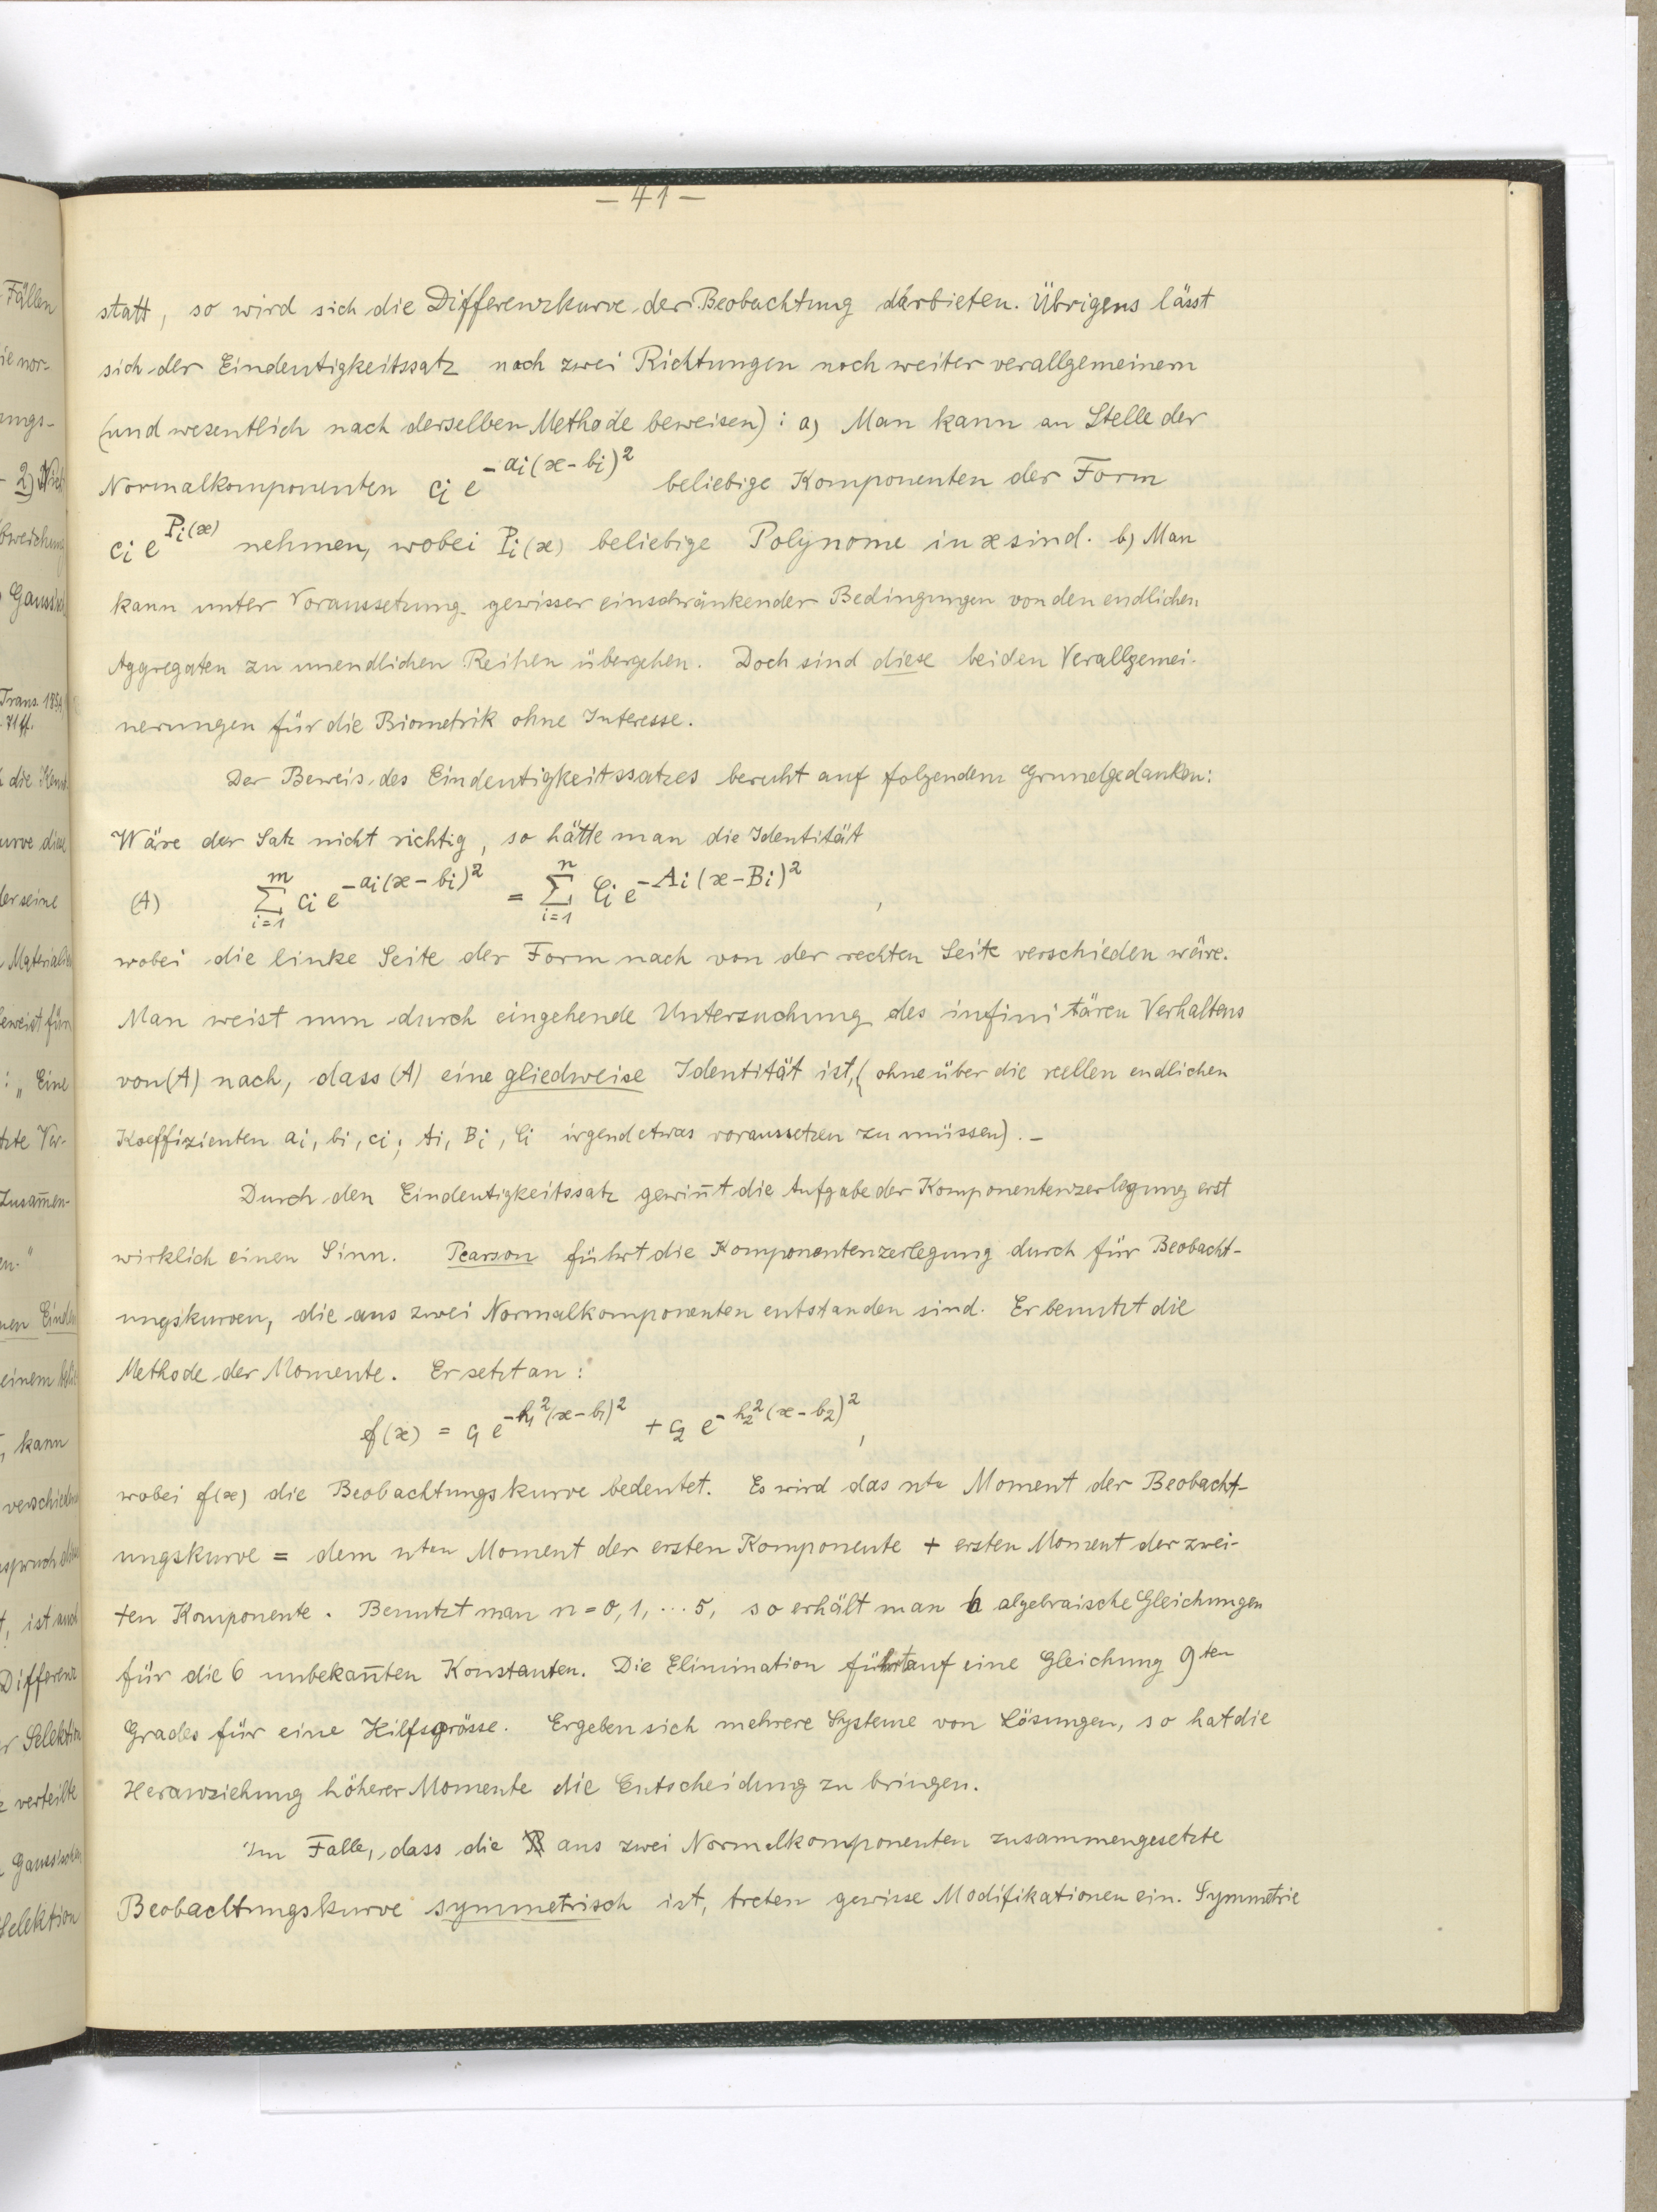 – 41 –
statt, so wird sich die Differenzkurve der Beobachtung darbieten. Übrigens lässt
sich der Eindeutigkeitssatz nach zwei Richtungen noch weiter verallgemeinern
(und wesentlich nach derselben Methode beweisen): a) Man kann an Stelle der
Normalkomponenten cᵢ e^{-aᵢ(x-bᵢ)²} beliebige Komponenten der Form
cᵢ e^{Pᵢ(x)} nehmen, wobei Pᵢ(x) beliebige Polynome in x sind. b) Man
kann unter Voraussetzung gewisser einschränkender Bedingungen von den endlichen
Aggregaten zu unendlichen Reihen übergehen. Doch sind diese beiden Verallgemei-
nerungen für die Biometrik ohne Interesse.
Der Beweis des Eindeutigkeitssatzes beruht auf folgendem Grundgedanken:
Wäre der Satz nicht richtig, so hätte man die Identität
(A) \sum_{i=1}^{m} cᵢ e^{-aᵢ(x-bᵢ)²} = \sum_{i=1}^{n} Cᵢ e^{-Aᵢ(x-Bᵢ)²},
wobei die linke Seite der Form nach von der rechten Seite verschieden wäre.
Man weist nun durch eingehende Untersuchung des infinitären Verhaltens
von (A) nach, dass (A) eine gliedweise Identität ist, (ohne über die reellen endlichen
Koeffizienten aᵢ, bᵢ, cᵢ; Aᵢ, Bᵢ, Cᵢ irgend etwas voraussetzen zu müssen). –
Durch den Eindeutigkeitssatz gewin̄t die Aufgabe der Komponentenzerlegung erst
wirklich einen Sinn. Pearson führt die Komponentenzerlegung durch für Beobacht-
ungskurven, die aus zwei Normalkomponenten entstanden sind. Er benutzt die
Methode der Momente. Er setzt an:
f(x) = c₁ e^{-h₁²(x-b₁)²} + c₂ e^{-h₂²(x-b₂)²},
wobei f(x) die Beobachtungskurve bedeutet. Es wird das nte Moment der Beobacht-
ungskurve = dem nten Moment der ersten Komponente + ersten Moment der zwei-
ten Komponente. Benutzt man n = 0, 1, ... 5, so erhält man 6 algebraische Gleichungen
für die 6 unbekan̄ten Konstanten. Die Elimination führt auf eine Gleichung 9ten
Grades für eine Hilfsgrösse. Ergeben sich mehrere Systeme von Lösungen, so hat die
Heranziehung höherer Momente die Entscheidung zu bringen.
Im Falle, dass die aus zwei Normalkomponenten zusammengesetzte
Beobachtungskurve symmetrisch ist, treten gewisse Modifikationen ein. Symmetrie